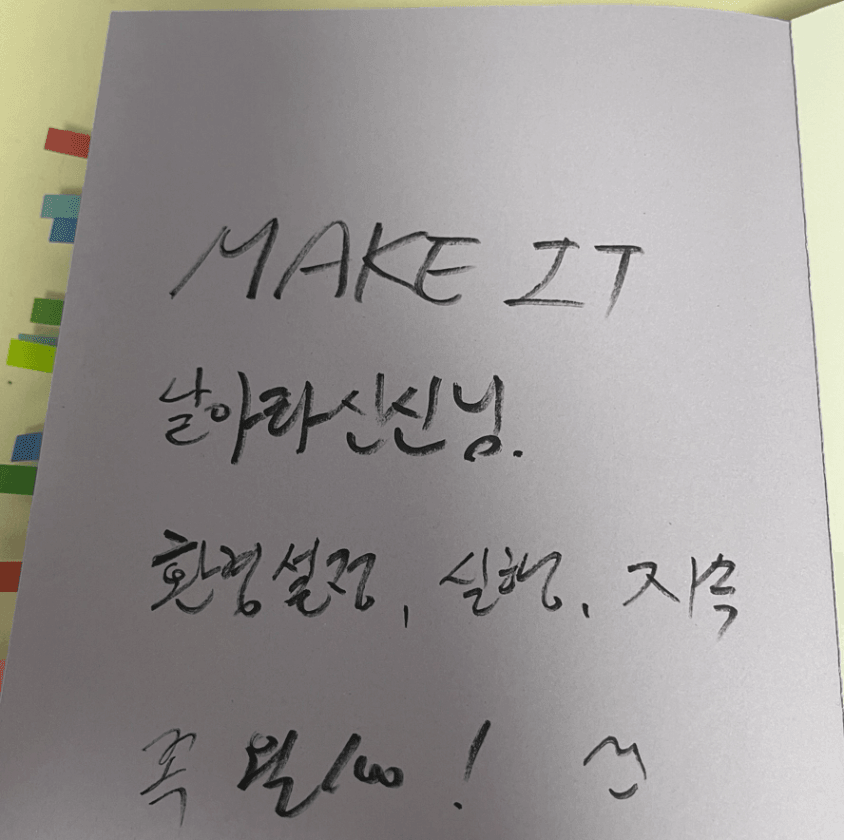 MAKE IT
날아라신신님.
환경설정, 실행, 지속
꼭 월100!